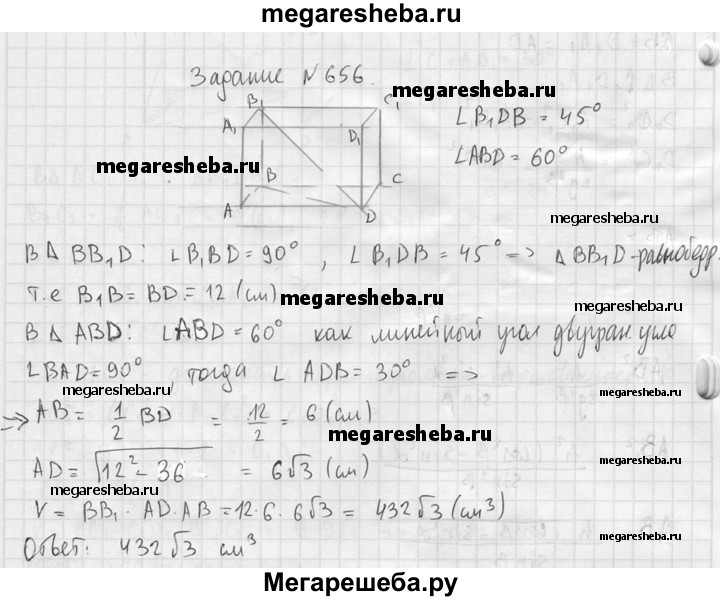 megaresheba.ru
Задание №656.
megaresheba.ru
B₁
C₁
∠B₁DB = 45°
A₁
D₁
megaresheba.ru
∠ABD = 60°
B
C
A
D
megaresheba.ru
В Δ BB₁D: ∠B₁BD = 90°, ∠B₁DB = 45° => Δ BB₁D - равнобедр.
т.е B₁B = BD = 12 (см)
megaresheba.ru
megaresheba.ru
В Δ ABD: ∠ABD = 60° как линейный угол двугран. угла
∠BAD = 90° тогда ∠ ADB = 30° =>
megaresheba.ru
megaresheba.ru
=> AB = 1/2 BD = 12/2 = 6 (см)
megaresheba.ru
AD = √12² - 36 = 6√3 (см)
megaresheba.ru
megaresheba.ru
V = BB₁ · AD · AB = 12 · 6 · 6√3 = 432√3 (см³)
megaresheba.ru
Ответ: 432√3 см³
Мегарешеба.ру